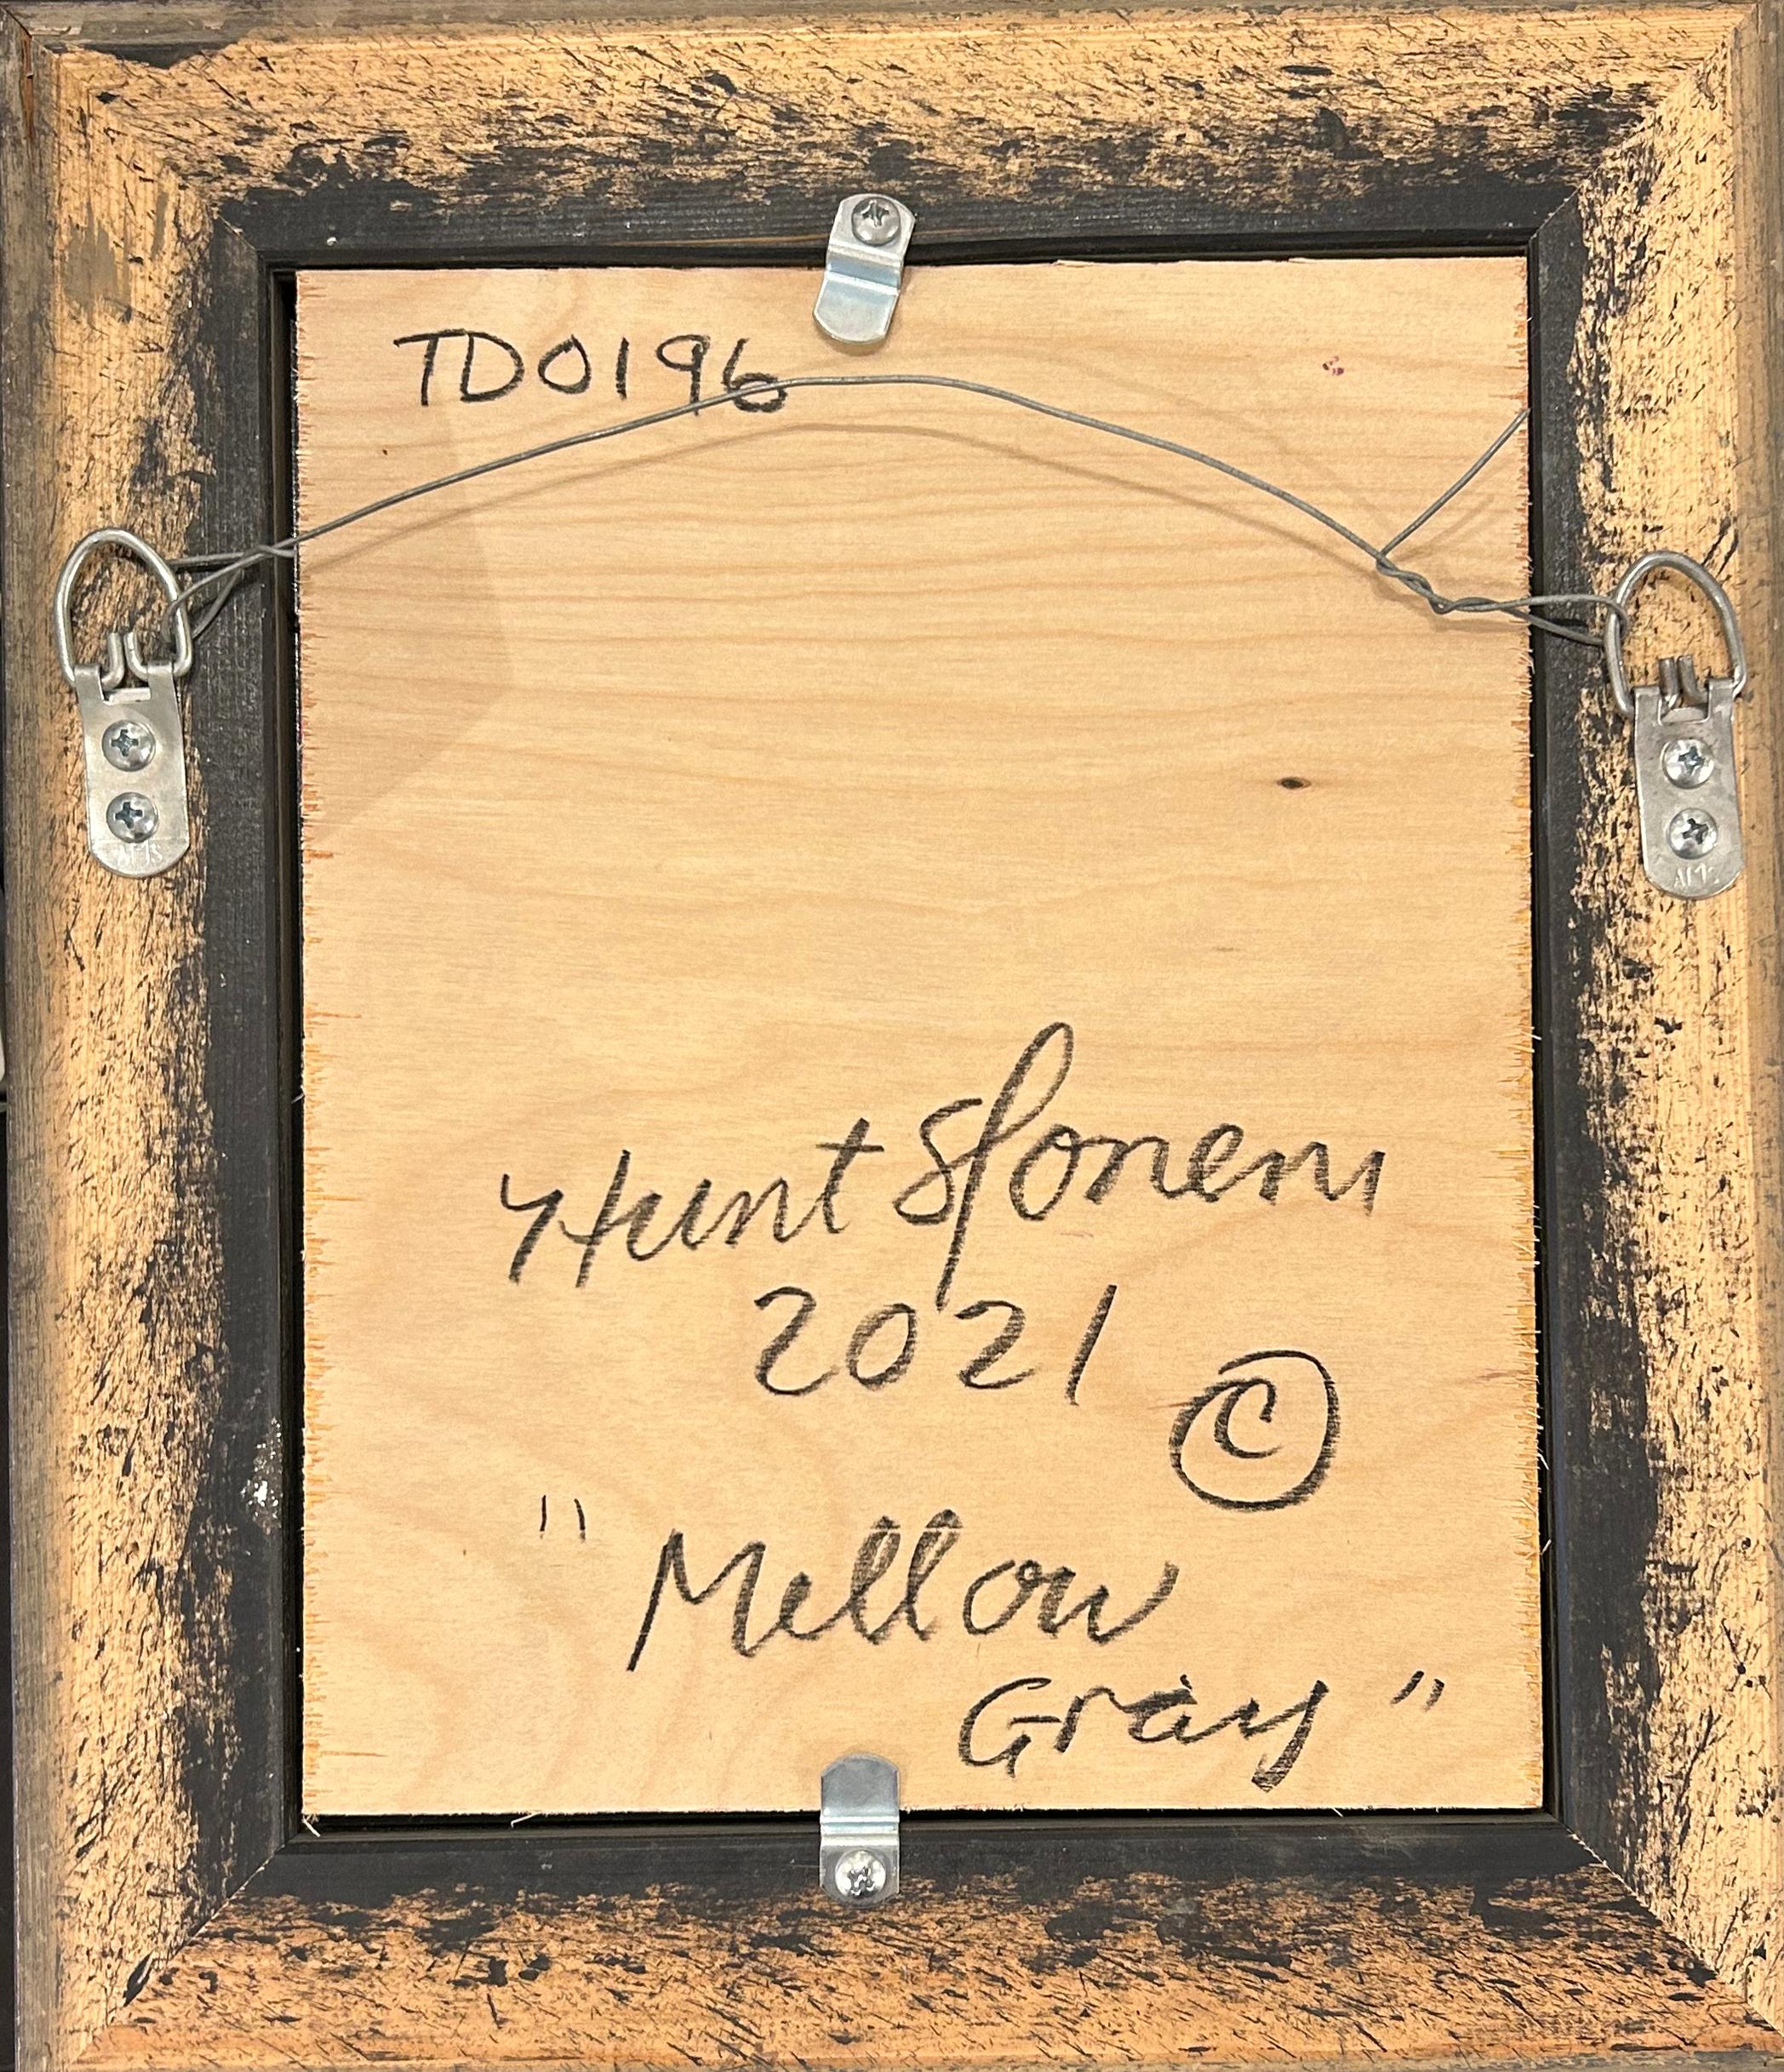 TD0196
Hunt Slonem
2021
©
"Mellow
Gray"